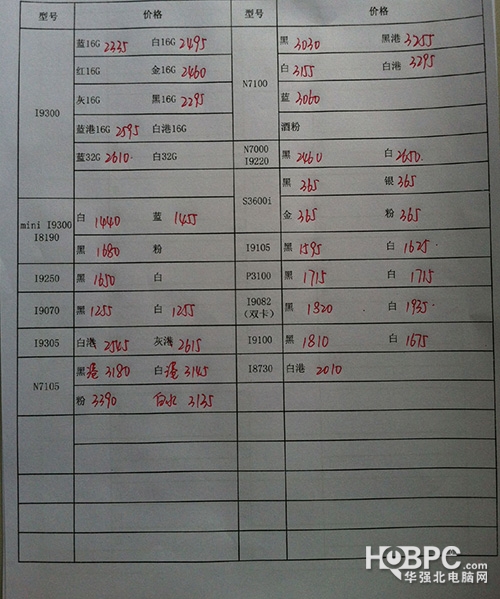 型号 价格 型号 价格
I9300
蓝16G 2335 白16G 2495
红16G 金16G 2460
灰16G 黑16G 2295
蓝港16G 2595 白港16G
蓝32G 2610 白32G
mini I9300
I8190
白 1440 蓝 1455
黑 1680 粉
I9250 黑 1650 白
I9070 黑 1255 白 1255
I9305 白港 2545 灰港 2615
N7105
黑港 3180 白港 3145
粉 3390 白水 3135
N7100
黑 3030 黑港 3255
白 3155 白港 3295
蓝 3060
酒粉
N7000
I9220
黑 2460 白 2650
S3600i
黑 365 银 365
金 365 粉 365
I9105 黑 1595 白 1625
P3100 黑 1715 白 1715
I9082
(双卡)
黑 1820 白 1935
I9100 黑 1810 白 1675
I8730 白港 2010
HQBPC.com
华强北电脑网